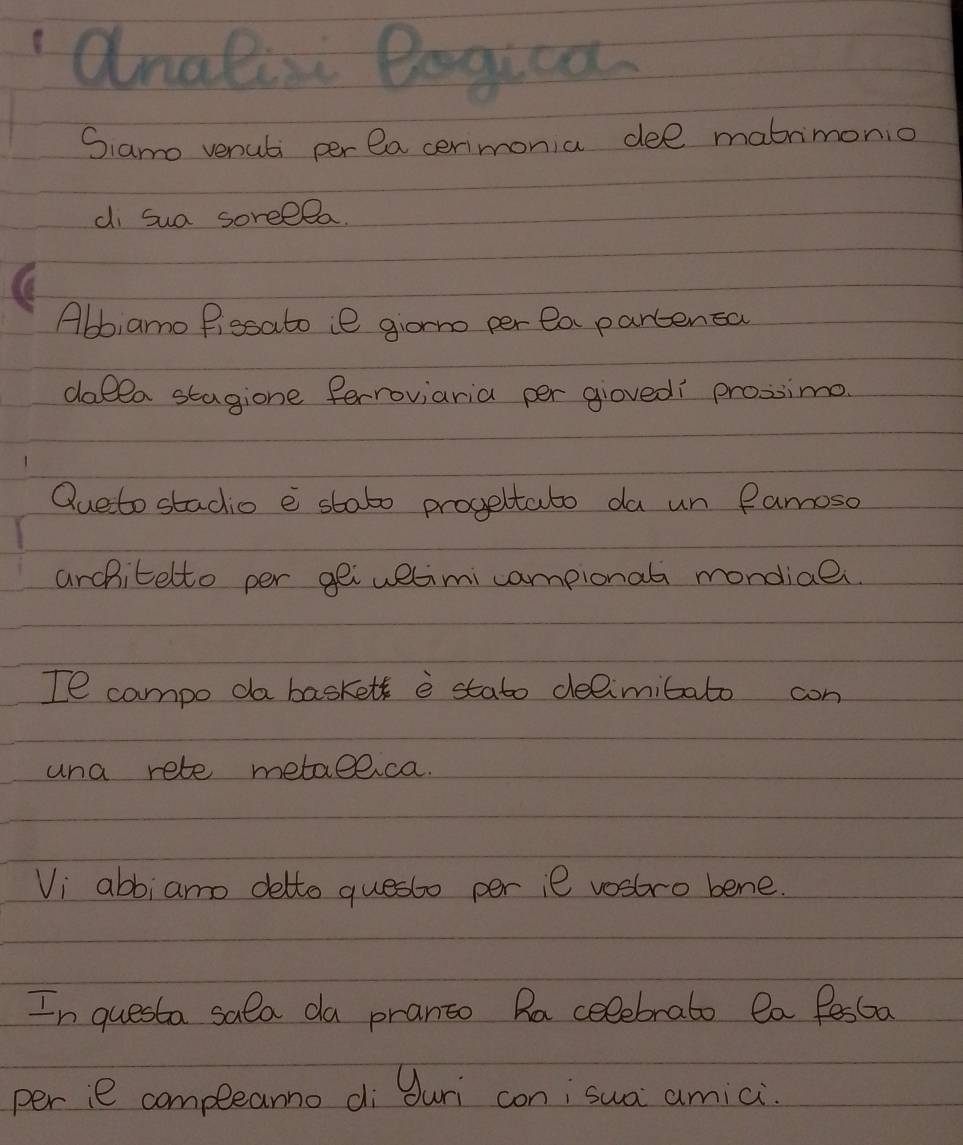 Analisi logica
Siamo venuti per la cerimonia del matrimonio
di sua sorella.
Abbiamo fissato il giorno per la partenza
dalla stagione ferroviaria per giovedì prossimo.
Questo stadio è stato progettato da un famoso
architetto per gli ultimi campionati mondiali.
Il campo da baskett è stato delimitato con
una rete metallica.
Vi abbiamo detto questo per il vostro bene.
In questa sala da pranzo ha celebrato la festa
per il compleanno di Yuri con i suoi amici.